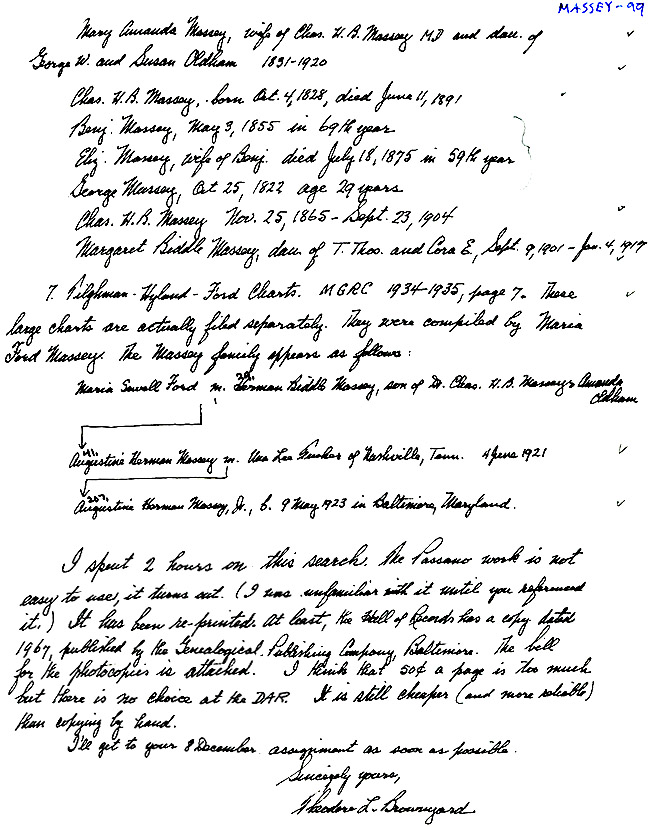 MASSEY-99
Mary Amanda Massey, wife of Chas. H.B. Massey MD and dau. of
George W. and Susan Oldham 1831-1920
Chas. H.B. Massey, born Oct. 4, 1828, died June 11, 1891
Benj. Massey, May 3, 1855 in 69th year
Eliz. Massey, wife of Benj. died July 18, 1875 in 59th year
George Massey, Oct 25, 1822 age 29 years
Chas. H.B. Massey Nov. 25, 1865 - Sept. 23, 1904
Margaret Biddle Massey, dau. of T. Thos. and Cora E., Sept. 9, 1901 - Jan. 4, 1917
7. Tilghman-Hyland-Ford Charts. MGRC 1934-1935, page 7. These
large charts are actually filed separately. They were compiled by Maria
Ford Massey. The Massey family appears as follows:
Maria Sewall Ford m. Herman Biddle Massey, son of Dr. Chas. H.B. Massey & Amanda
Oldham
Augustine Herman Massey m. Una Lee of Nashville, Tenn. 4 June 1921
207.
Augustine Herman Massey, Jr., b. 9 May 1923 in Baltimore, Maryland.
I spent 2 hours on this search. The Passano work is not
easy to use, it turns out. (I was unfamiliar with it until you referenced
it.) It has been re-printed. At least, the Hall of Records has a copy dated
1967, published by the Genealogical Publishing Company, Baltimore. The bill
for the photocopies is attached. I think that 50¢ a page is too much
but there is no choice at the DAR. It is still cheaper (and more reliable)
than copying by hand.
I'll get to your 8 December assignment as soon as possible.
Sincerely yours,
Theodore L. Brownyard